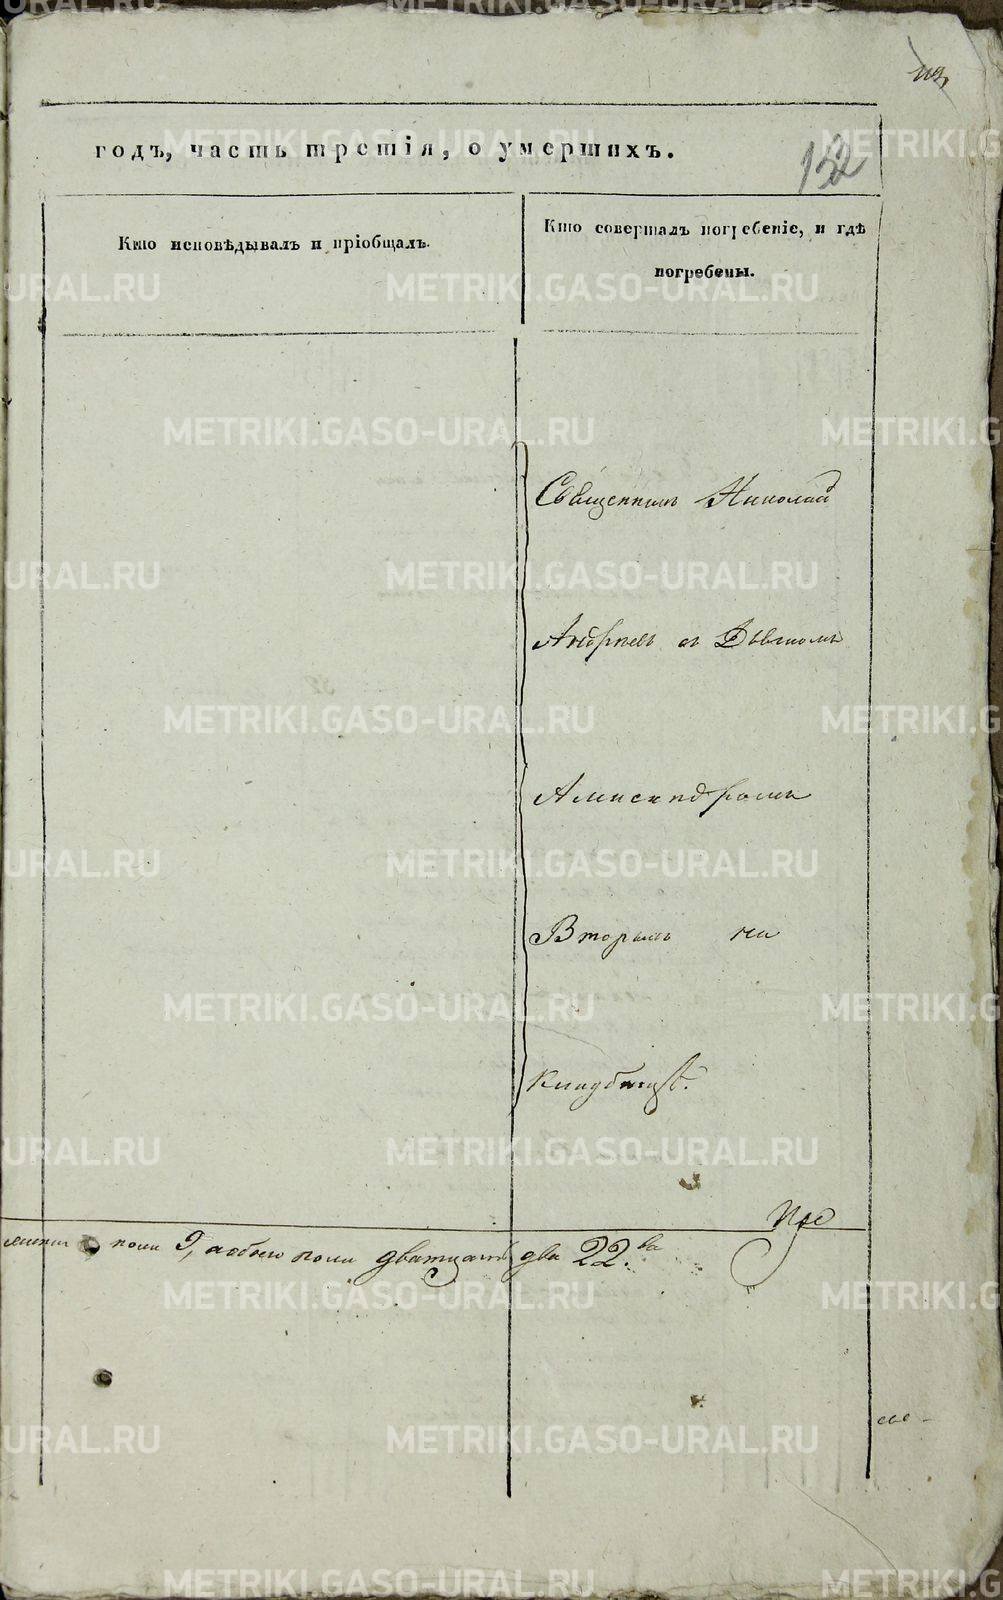 годъ, часть третія, о умершихъ.
132
Кто исповѣдывалъ и пріобщалъ.
Кто совершалъ погребеніе, и гдѣ
погребены.
Священникъ Николай
Андреевъ съ Дьячкомъ
Александромъ
Вторымъ на
кладбищѣ.
пола 9, обоего пола дватцать два 22.ва
METRIKI.GASO-URAL.RU